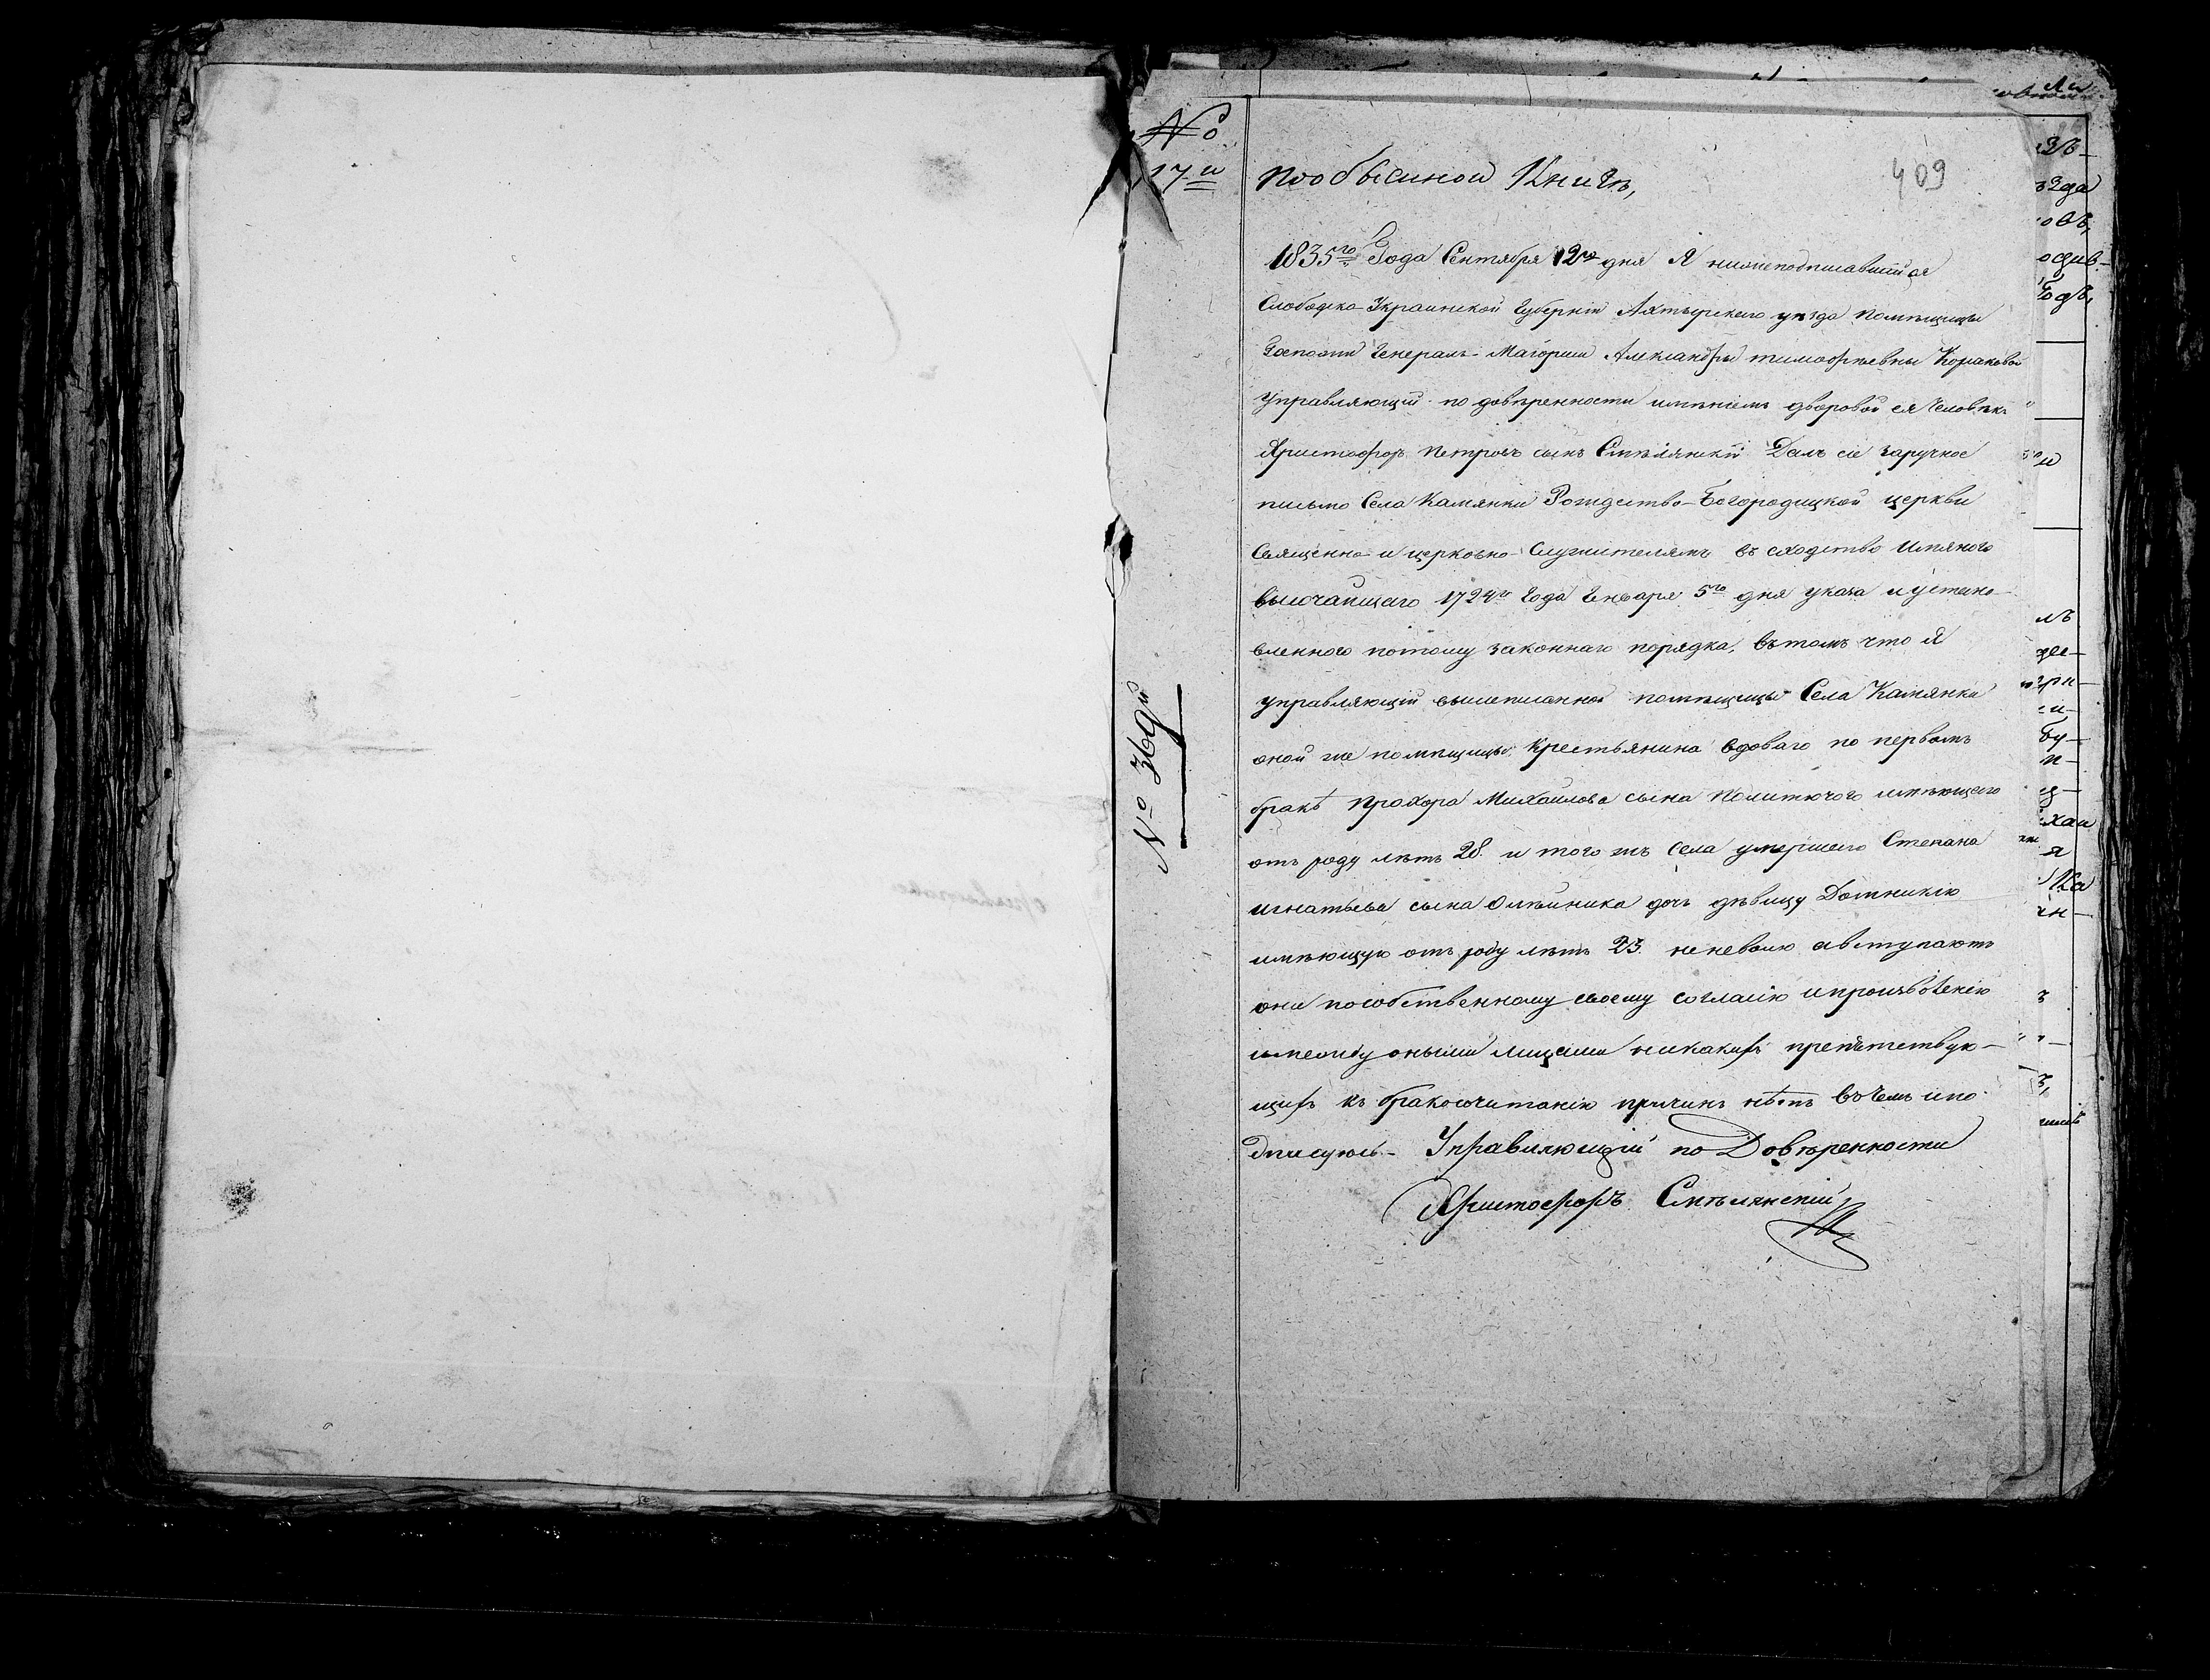 №
17-й
пообысиной Книгѣ,
409
1835го Года Сентября 12го дня Я нижеподписавшійся
Слободско-Украинской Губерніи Ахтырского уѣзда помѣщицы
Госпожи Генералъ-Маіорши Александры тимофѣевны Кораковой
Управляющій по довѣренности имѣніемъ дворовой ея Человѣкъ
Христофоръ Петровъ сынъ Смѣлянскій Далъ сіе заручное
письмо Села Камянки Рождество-Богородицкой церкви
Священно и церковно-Служителямъ въ сходство Имяного
высочайшаго 1724го Года Генваря 5го дня указа и устано-
вленного потому законнаго порядка, втомъ что я
управляющій вышеписанной помѣщицы Села Камянки
оной же помѣщицы крестьянина вдоваго по первомъ
бракѣ Прохора Михайлова сына имѣющего
отъ роду лѣтъ 28. и того жъ Села умершего Степана
игнатьева сына Олѣйника дочь дѣвицу Домникію
имѣющую отъ роду лѣтъ 23. неневолю авступаютъ
они пособственному своему согласію ипроизволенію
имежду оными лицами никакихъ препѣтствую-
щихъ къ бракосочитанію причинъ нѣтъ вчемъ ипо-
дписуюсь- Управляющій по Довѣренности
Христофоръ Смѣлянскій
№ 369й